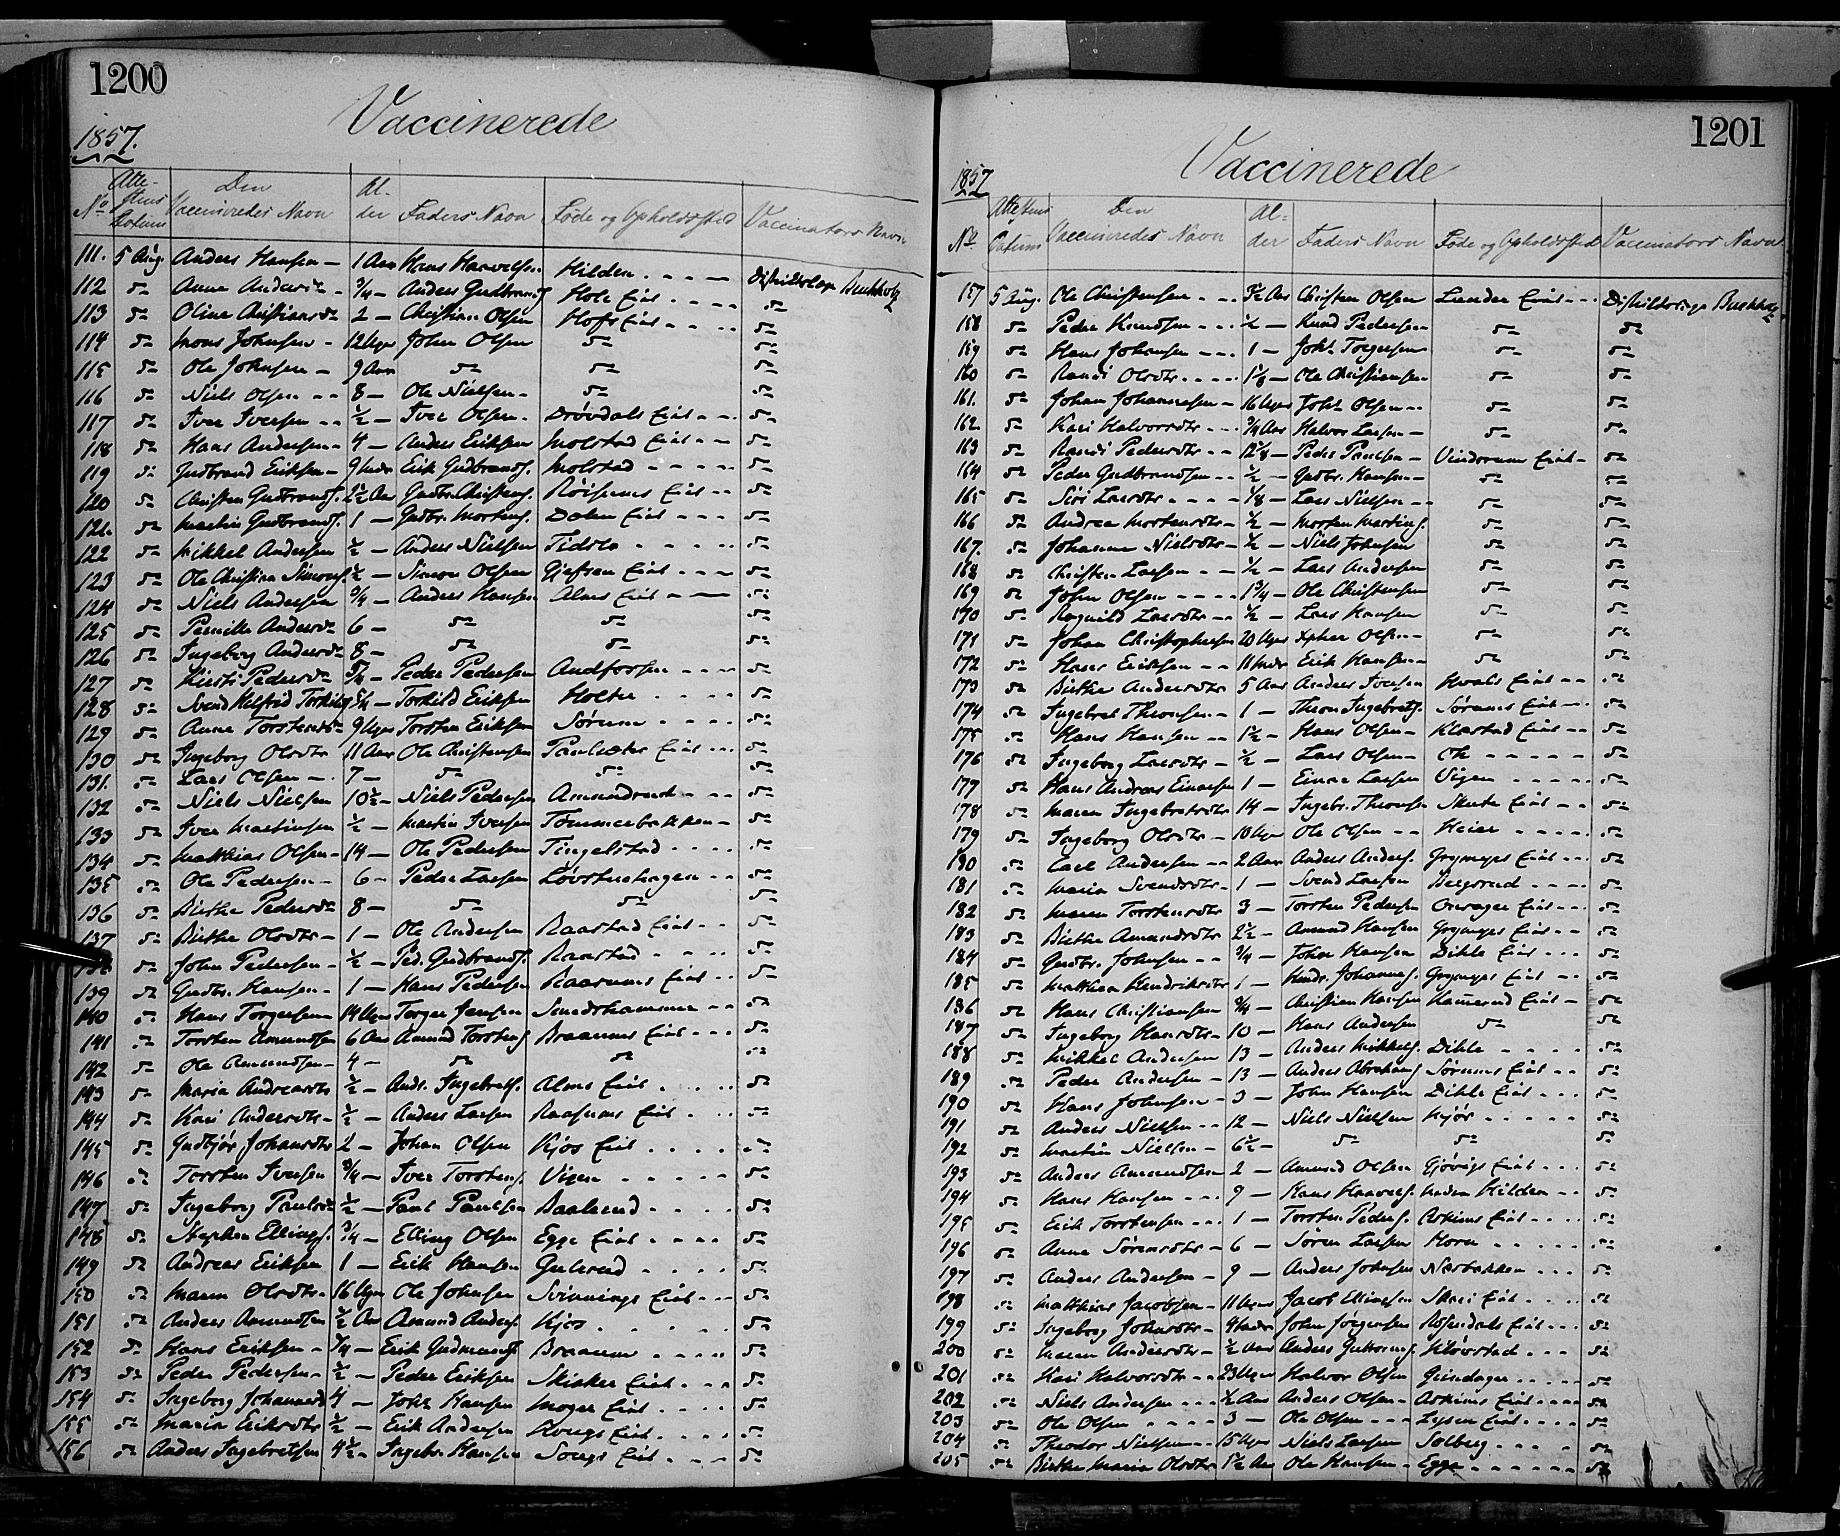 1200
Vaccinerede
1857.
No Atte-stens Datum Den Vaccineredes Navn Al-der Faders Navn Føde og Opholdssted Vaccinators Navn
111. 5 Aug. Anders Hansen — 1 Aar Hans Haavelsen Hilden Distriktslæge Buchholz
112 do Anne Andersdr ¾ — Anders Gudbrands. Hole Eiet do
113 do Oline Christiansdr 2 — Christian Olsen Hofs Eiet do
114 do Mons Johnsen 12 Uger John Olsen do do
115 do Ole Johnsen 9 Aar do do do
116 do Niels Olsen 8 — Ole Nielsen do do
117 do Iver Iversen ½ — Iver Olsen Drøvdals Eiet do
118 do Hans Andersen 4 — Anders Eriksen Molstad Eiet do
119 do Gudbrand Eriksen 9 Mdr Erik Gudbrands. Molstad do
120 do Christen Gudbrands. 2½ Aar Gudbr. Christens. Røisums Eiet do
121. do Martin Gudbrands. 1 — Gudbr. Mortens. Dalen Eiet do
122 do Mikkel Andersen ½ — Anders Nielsen do
123 do Ole Christian Simons. ½ — Simon Olsen Gjefsen Eiet do
124 do Niels Andersen ¾ — Anders Hansen Alms Eiet do
125 do Pernille Andersdr 6 — do do do
126 do Ingeborg Andersdr 8 — do do do
127 do Kirsti Pedersdr ¾ — Peder Pedersen Andfossen do
128 do Svend Torkild Eriksen Holter do
129 do Anne Torstensdr 9 Uger Torsten Eriksen Sørum do
130 do Ingeborg Olsdtr 11 Aar Ole Christensen Eiet do
131. do Lars Olsen 7 — do do do
132 do Niels Nielsen 10½ — Niels Pedersen Amundrud do
133 do Iver Martinsen ½ — Martin Iversen Tømmerbakken do
134 do Matthias Olsen 14 — Ole Pedersen Tingelstad do
135 do Ole Pedersen 6 — Peder Larsen Løvstuehagen do
136 do Birthe Pedersdr 8 — do do do
137 do Birthe Olsdtr 1 — Ole Andersen Raastad Eiet do
138 do John Pedersen ½ — Ped. Gudbrands. Raastad do
139 do Gudbr. Hansen 1 — Hans Pedersen Raasums Eiet do
140 do Hans Torgersen 14 Uger Torger Jensen Smedshammer do
141 do Torsten Amundsen 6 Aar Amund Torstens. Braanums Eiet do
142 do Ole Amundsen 4 — do do do
143 do Maria Andreasdtr ½ — Andr. Ingebrets. Alms Eiet do
144 do Kari Andersdtr ½ — Anders Larsen Raasums Eiet do
145 do Gudbjør Johansdtr 2 — Johan Olsen Kjos Eiet do
146 do Torsten Iversen ¾ — Iver Torstens. Vigen do
147 do Ingeborg Paulsdr ½ — Paul Paulsen Baalerud do
148 do Stephen Ellings. ¾ — Elling Olsen Egge Eiet do
149 do Andreas Eriksen 1 — Erik Hansen Gulerud do
150 do Maren Olsdtr 16 Uger Ole Johnsen Svinnings Eiet do
151 do Anders Amundsen ½ Aar Amund Anders. Kjos do
152 do Hans Eriksen ¾ — Erik Gudmunds. Braanum do
153 do Peder Pedersen ½ — Peder Eriksen Skisker Eiet do
154 do Ingeborg Johannesd 4 — Johs. Hansen Moger Eiet do
155 do Maria Eriksdtr ½ — Erik Andersen Hougs Eiet do
156 do Anders Ingebretsen 4½ — Ingebr. Hansen Songs Eiet do
1201
Vaccinerede
1857
No Attestens Datum Den Vaccineredes Navn Al-der Faders Navn Føde og Opholdssted Vaccinators Navn
157 5 Aug. Ole Christensen Aar Christen Olsen Lunder Eiet Distriktslæge Buchholz
158 do Peder Knudsen ½ — Knud Pedersen do do
159 do Hans Johansen 1 — Johs. Torgersen do do
160 do Randi Olsdtr — Ole Christiansen do do
161. do Johan Johannesen 16 Uger Johs. Olsen do do
162 do Kari Halvorsdtr ¾ Aar Halvor Larsen do do
163 do Randi Pedersdtr — Peder Paulsen Vindorum Eiet do
164 do Peder Gudbrandsen ½ — Gudbr. Hansen do do
165 do Siri Larsdtr — Lars Nielsen do do
166 do Andrea Mortensdtr ½ — Morten Martins. do do
167. do Johanne Nielsdtr ½ — Niels Johnsen do do
168 do Christen Larsen ½ — Lars Andersen do do
169 do John Olsen 1¾ — Ole Christensen do do
170 do Ragnild Larsdtr ½ — Lars Hansen do do
171 do Johan Christophersen 20 Uger Xpher Olsen do do
172 do Hans Eriksen 11 Mdr Erik Hansen do do
173 do Birthe Andersdtr 5 Aar Anders Iversen Hvals Eiet do
174 do Ingebret Thronsen 1 — Thron Ingebrets. Sørums Eiet do
175 do Hans Hansen 1½ — Hans Olsen Klæstad Eiet do
176 do Ingeborg Larsdtr ½ — Lars Olsen do
177 do Hans Andreas Einarsen 1 — Einar Larsen Vigen do
178 do Maren Ingebretsdtr 14 — Ingebr. Throns. Skute Eiet do
179 do Ingeborg Olsdtr 10 Uger Ole Olsen Heier do
180 do Carl Andersen 2 Aar Anders Anders. Grymyrs Eiet do
181 do Maria Svendsdtr 1 — Svend Larsen Bergsrud do
182 do Maren Torstensdtr 3 — Torsten Pedersen Onsager Eiet do
183 do Birthe Amundsdtr 2½ — Amund Hansen Grymyrs Eiet do
184 do Gudbr. Johnsen ¾ — John Hansen Dihle Eiet do
185 do Mathea Hendriksdtr 1 — Hndr. Johannes. Grymyrs Eiet do
186 do Hans Christiansen ¾ — Christian Hansen Hamerud Eiet do
187 do Ingeborg Hansdtr 10 — Hans Andersen do do
188 do Mikkel Andersen 13 — Anders Mikkels. Dihle do
189 do Peder Andersen 13 — Anders Abrahams. Sørums Eiet do
190 do Hans Johnsen 3 — John Hansen Dihle Eiet do
191 do Anders Nielsen 12 — Niels Nielsen Kjør do
192 do Martin Nielsen 6½ — do do do
193 do Anders Amundsen 2 — Amund Olsen Gjøvigs Eiet do
194 do Hans Hansen 9 — Hans Haavels. Hilden do
195 do Erik Torstensen 1 — Torsten Peders. Askims Eiet do
196 do Anne Sørensdtr 6 — Søren Larsen Horn do
197 do Anders Andersen 9 — Anders Johnsen Næsbakken do
198 do Matthias Jacobsen 11 Uger Jacob Ellingsen Skari Eiet do
199 do Ingeborg Johnsdtr 4 Mdr John Jørgensen Rosendals Eiet do
200 do Maren Andersdtr ½ Aar Anders Guttorms. Kløvstad do
201 do Kari Halvorsdtr 23 Uger Halvor Olsen Grindager do
202 do Niels Andersen ½ Aar Anders Olsen Askims Eiet do
203 do Ole Olsen 3 — Ole Olsen Lysen Eiet do
204 do Theodor Nielsen 15 Uger Niels Larsen Solberg do
205 do Birthe Maria Olsdtr 1½ Aar Ole Hansen Egge do